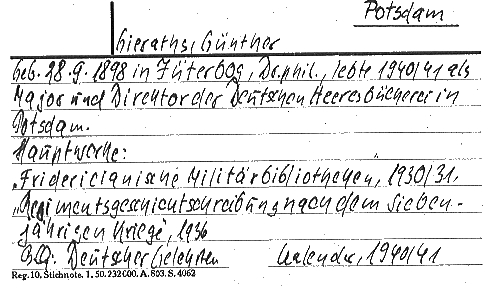 Potsdam
Gieraths, Günther
Geb. 28.9.1898 in Jüterbog, Dr. phil., lebte 1940/41 als
Major und Direktor der Deutschen Heeresbücherei in
Potsdam.
Hauptwerke:
"Fridericianische Militärbibliotheken", 1930/31.
"Regimentsgeschichtschreibung nach dem Sieben-
jährigen Kriege", 1936
Deutscher Gelehrten Kalender, 1940/41
Reg. 10. Stichnote. 1. 50. 232000. A. 803. S. 4062